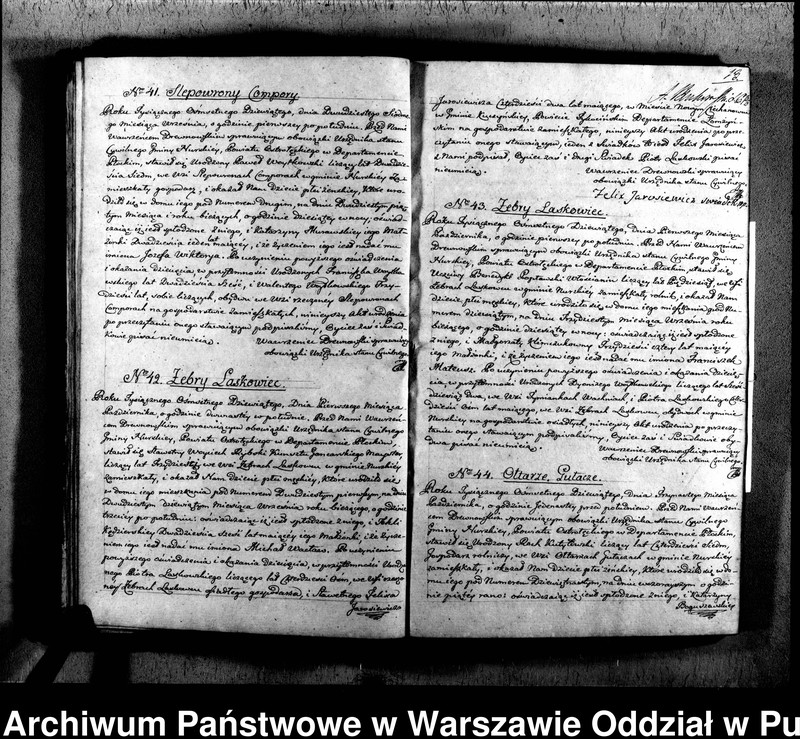 No 41. Slepowrony Compory.
Roku Tysiącznego Ośmsetnego Dziewiątego, dnia Dwudziestego Siódme-
go Miesiąca Września, o godzinie pierwszey po południu. Przed Nami
Wawrzeńcem Drewnoskim sprawuiącym obowiązki Urzędnika stanu
Cywilnego Gminy Nurskiey, Powiatu Ostrołęckiego w Departamencie
Płockim, stawił się Urodzony Paweł Woytkowski liczący lat Dwadzie-
ścia Siedm, we Wsi Slepowronach Comporach w gminie Nurskiey Za-
mieszkały gospodarz, i okazał Nam dziecie płci żeńskiey, które uro-
dziło się w domu iego pod Numerem Drugim, na dniu Dwudziestym pią-
tym Miesiąca i roku bieżących, o godzinie dziesiątey w nocy, oświad-
czaiąc iż iest spłodzone z niego, i Katarzyny Murawskiey iego Mał-
żonki Dwadzieścia ieden lat maiącey, i iż życzeniem iego iest nadać mu
imiona Jozefa Wiktorya. Po uczynieniu powyższego oświadczenia
i okazaniu dziecięcia w przytomności Urodzonych Franciszka Woytko-
wskiego lat Dwadzieścia Sześć, i Walentego Woytkowskiego Trzy-
dzieści lat, sobie liczących, obydwu we Wsi rzeczoney Slepowronach
Comporach na gospodarstwie zamieszkałych, ninieyszy Akt urodzenia
po przeczytaniu onego stawaiącym podpisaliśmy, Oyciec zaś i świad-
kowie pisać nieumieią. Wawrzeniec Drewnoski sprawuiący
obowiązki Urzędnika stanu Cywilnego.
No 42. Żebry Laskowiec.
Roku Tysiącznego Ośmsetnego Dziewiątego, Dnia Pierwszego Miesiąca
Października, o godzinie dwunastey w południe. Przed Nami Wawrzeń-
cem Drewnoskim sprawuiącym obowiązki Urzędnika stanu Cywilnego
Gminy Nurskiey, Powiatu Ostrołęckiego w Departamencie Płockim,
stawił się Sławetny Woyciech Rybski Kunsztu Garncarskiego Mayster,
liczący lat Trzydzieści, we Wsi Żebrach Laskowcu w gminie Nurskiey
Zamieszkały, i okazał Nam dziecie płci męzkiey, które urodziło się
w domu iego mieszkania pod Numerem Dwudziestym pierwszym, na dniu
Dwudziestym dziewiątym Miesiąca Września roku bieżącego, o godzinie
trzeciey po południu: oświadczaiąc iż iest spłodzone z niego, i
Kędzierskiey Dwadzieścia Sześć lat maiącey iego Małżonki, i iż życze-
niem iego iest nadać mu imiona Michał Wacław. Po uczynieniu
powyższego oświadczenia i okazaniu dziecięcia, w przytomności Urodzo-
nego Piotra Laskowskiego liczącego lat Czterdzieści Ośm, we Wsi rzeczo-
ney Żebrach Laskowcu osiadłego gospodarza, i Sławetnego Felixa
Jarosiewicza
Jarosiewicza Czterdzieści dwa lat maiącego, w Mieście
w Gminie Kuczyńskiey, Powiecie Tykocińskim Departamencie Łomżyń-
skim na gospodarstwie zamieszkałego, ninieyszy Akt urodzenia po prze-
czytaniu onego stawaiącym, ieden z świadków to iest Felix Jarosiewicz
z Nami podpisał, Oyciec zaś i Drugi Świadek Piotr Laskowski pisać
nieumieią. Wawrzeniec Drewnoski sprawuiący
obowiązki Urzędnika stanu Cywilnego.
Felix Jarosiewicz
No 43. Żebry Laskowiec.
Roku Tysiącznego Ośmsetnego Dziewiątego, dnia Pierwszego Miesiąca
Października, o godzinie pierwszey po południu. Przed Nami Wawrzeńcem
Drewnoskim sprawuiącym obowiązki Urzędnika stanu Cywilnego Gminy
Nurskiey, Powiatu Ostrołęckiego w Departamencie Płockim, stawił się
Uczciwy Benedykt Rogowski Włościanin liczący lat Pięćdziesiąt, we Wsi
Żebrach Laskowcu w gminie Nurskiey zamieszkały rolnik, i okazał Nam
dziecie płci męzkiey, które urodziło się w domu iego mieszkania pod Nu-
merem dziewiętym, na dniu Trzydziestym Miesiąca Września roku
bieżącego, o godzinie dziesiątey w nocy: oświadczaiąc iż iest spłodzone
z niego, i Małgorzaty Klimczukowny Trzydzieści cztery lat maiącey
iego Małżonki, i iż życzeniem iego iest nadać mu imiona Franciszek
Mateusz. Po uczynieniu powyższego oświadczenia i okazaniu dziecię-
cia, w przytomności Urodzonych Dyonizego Woytkowskiego liczącego lat Sześć-
dziesiąt dwa, we Wsi Tymiankach Wachniach, i Piotra Laskowskiego Czter-
dzieści Ośm lat maiącego, we Wsi Żebrach Laskowcu, obydwuch w gminie
Nurskiey na gospodarstwie osiadłych, ninieyszy Akt urodzenia po przeczy-
taniu onego stawaiącym podpisaliśmy, Oyciec zaś i Świadkowie oby-
dwa pisać nieumieią. Wawrzeniec Drewnoski sprawuiący
obowiązki Urzędnika stanu Cywilnego.
No 44. Ołtarze, Gołacze.
Roku Tysiącznego Ośmsetnego Dziewiątego, Dnia Trzynastego Miesiąca
Października, o godzinie Jedenastey przed południem. Przed Nami Wawrzeń-
cem Drewnoskim sprawuiącym obowiązki Urzędnika stanu Cywilnego
Gminy Nurskiey, Powiatu Ostrołęckiego w Departamencie Płockim,
stawił się Urodzony Roch liczący lat Czterdzieści Siedm,
Gospodarz rolniczy, we Wsi Ołtarzach Gołaczach w gminie Nurskiey
zamieszkały, i okazał Nam Dziecie płci żeńskiey, które urodziło się w do-
mu iego pod Numerem Dziewiętnastym, na dniu wczorayszym o godzi-
nie piątey rano: oświadczaiąc iż iest spłodzone z niego, i Katarzyny
Boguszewskiey
Archiwum Państwowe w Warszawie Oddział w Pu